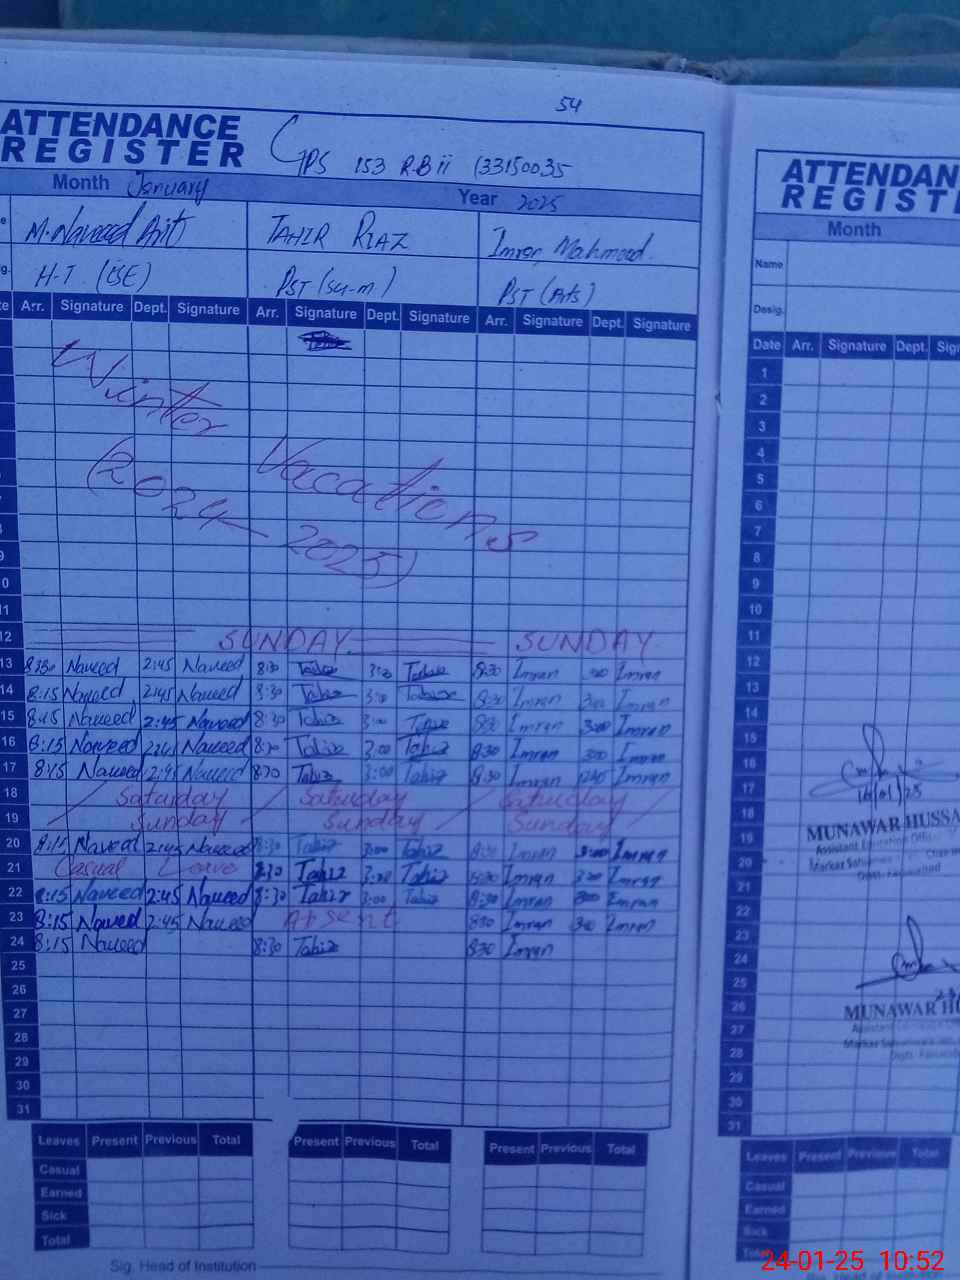 54
ATTENDANCE
REGISTER GPS 153 R.B ii (33150035
Month January Year 2025
M. Naveed TAHIR RIAZ Imran Mahmood
H-T. (ESE) PST (Sci-m) PST (Arts)
Arr. Signature Dept. Signature Arr. Signature Dept. Signature Arr. Signature Dept. Signature
Winter Vacations
(2024 - 2025)
12 SUNDAY SUNDAY
13 8:30 Naveed 2:45 Naveed 8:30 Tahir 3:00 Tahir 8:30 Imran 3:00 Imran
14 8:15 Naveed 2:45 Naveed 8:30 Tahir 3:00 Tahir 8:30 Imran 3:00 Imran
15 8:15 Naveed 2:45 Naveed 8:30 Tahir 3:00 Tahir 8:30 Imran 3:00 Imran
16 8:15 Naveed Naveed 8:30 Tahir 3:00 Tahir 8:30 Imran 300 Imran
17 8:15 Naveed 2:45 Naveed 8:30 Tahir 3:00 Tahir 8:30 Imran Imran
18 Saturday Saturday Saturday
19 Sunday Sunday Sunday
20 8:15 Naveed 2:45 Naveed 8:30 Tahir 3:00 Tahir 8:30 Imran 3:00 Imran
21 Casual Leave 8:30 Tahir 3:00 Tahir 8:30 Imran 300 Imran
22 8:15 Naveed 2:45 Naveed 8:30 Tahir 3:00 Tahir 8:30 Imran 300 Imran
23 8:15 Naveed 2:45 Naveed Absent 8:30 Imran 300 Imran
24 8:15 Naveed 8:30 Tahir 8:30 Imran
25
26
27
28
29
30
31
Leaves Present Previous Total Present Previous Total Present Previous Total
Casual
Earned
Sick
Total
Sig. Head of Institution
ATTENDAN
REGISTE
Month
Name
Desig.
Date Arr. Signature Dept. Sig
1
2
3
4
5
6
7
8
9
10
11
12
13
14
15
16
17
18
19
20
21
22
23
24
25
26
27
28
29
30
31
16/01/25
MUNAWAR HUSSA
Assistant Education Office
MUNAWAR HU
Leaves Present Previous Total
Casual
Earned
Sick
Total
24-01-25 10:52